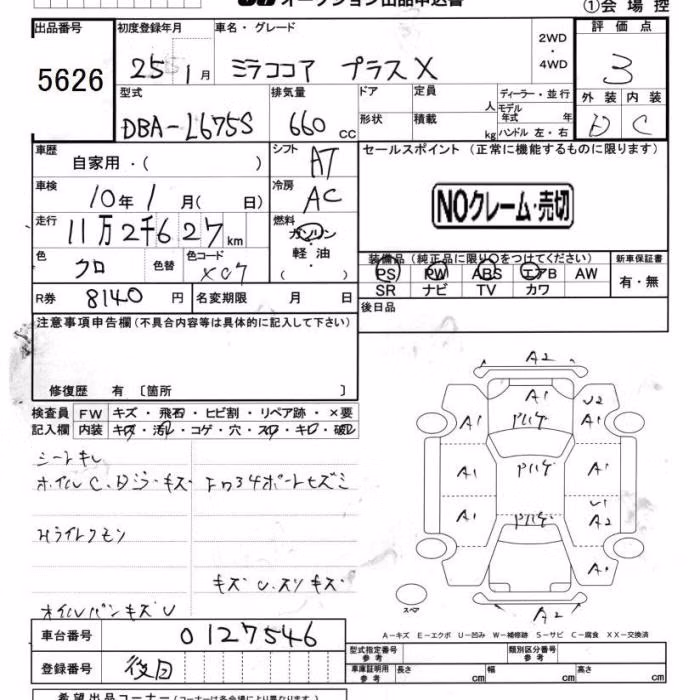 オークション出品申込書 ①会場控
出品番号 初度登録年月 車名・グレード 2WD・4WD 評価点
5626 25 1月 ミラココア プラスX 3
型式 排気量 ドア 定員 人 ディーラー・並行 外装 内装
DBA-L675S 660 CC 形状 積載 kg モデル年式 年 ハンドル 左・右 D C
車歴 自家用・( ) シフト AT セールスポイント (正常に機能するものに限ります)
車検 10年 1月( 日) 冷房 AC NOクレーム・売切
走行 11万2千627km 燃料 ガソリン・軽油・( )
色 クロ 色替 色コード X07 装備品(純正品に限り○をつけてください) 新車保証書
PS PW ABS エアB AW 有・無
SR ナビ TV カワ
R券 8140円 名変期限 月 日 後日品
注意事項申告欄(不具合内容等は具体的に記入して下さい)
修復歴 有〔箇所 〕
検査員 FW キズ・飛石・ヒビ割・リペア跡・×要
記入欄 内装 キズ・汚レ・コゲ・穴・スレ・キレ・破レ
シートキレ
キズ U.スリキズ
オイルパンキズU
A2
A1 A1 U2
A1 A1
A1 U1 A2
A1
スペア A2
A-キズ E-エクボ U-凹み W-補修跡 S-サビ C-腐食 XX-交換済
車台番号 0127546 型式指定番号 参考 類別区分番号 参考
登録番号 後日 車庫証明用 参考 長さ cm 幅 cm 高さ cm
希望出品コーナー(コーナーは各会場により異なります)